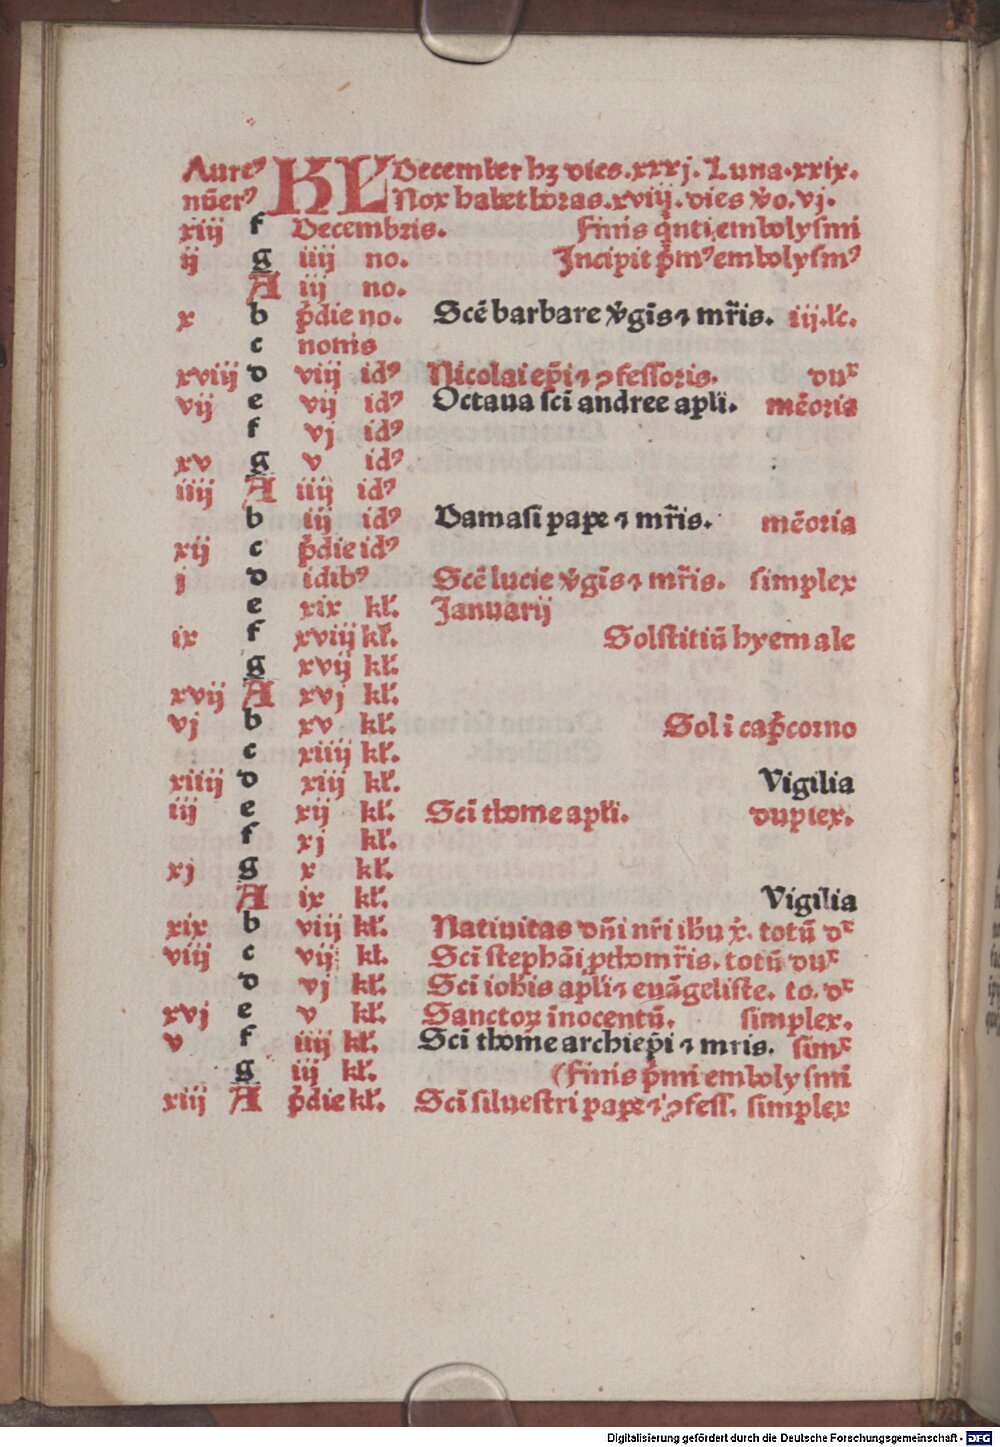 Aureꝰ KL̵ December hꝫ dies.xxxj. Luna.xxix.
nūerꝰ Nox habet horas.xviij.dies v̄o.vj.
xiij f Decembris. Finis q̄nti embolysmi
ij g iiij no. Incipit p̄mꝰ embolysmꝰ
A iij no.
x b p̄die no. Scē barbare v̄gīs ⁊ mr̄is. iij.lc̄.
c nonis
xviij d viij idꝰ Nicolai ep̄i ⁊ ꝯfessoris. du
vij e vij idꝰ Octaua sci andree apl̄i. mēoria
f vj idꝰ
xv g v idꝰ
iiij A iiij idꝰ
b iij idꝰ Damasi pape ⁊ mr̄is. mēoria
xij c p̄die idꝰ
j d idibꝰ Scē lucie v̄gīs ⁊ mr̄is. simplex
e xix kl̄. Januarij
ix f xviij kl̄. Solstitiū hyemale
g xvij kl̄.
xvij A xvj kl̄.
vj b xv kl̄. Sol ī cap̄corno
c xiiij kl̄.
xiiij d xiij kl̄. Vigilia
iij e xij kl̄. Scī thome apl̄i. duplex.
f xj kl̄.
xj g x kl̄.
A ix kl̄. Vigilia
xix b viij kl̄. Natiuitas dn̄i nr̄i ihu x̄. totū d
viij c vij kl. Scī stephāi ꝓthomr̄is. totū du
d vj kl̄. Scī iohīs apl̄i ⁊ euāgeliste. to. d
xvj e v kl̄. Sanctoꝝ īnocentū. simplex.
v f iiij kl̄. Scī thome archiep̄i ⁊ mris. sim
g iij kl̄. (Finis p̄mi embolysmi
xiij A p̄die kl̄. Scī siluestri pape ⁊ ꝯfess. simplex
Digitalisierung gefördert durch die Deutsche Forschungsgemeinschaft - DFG